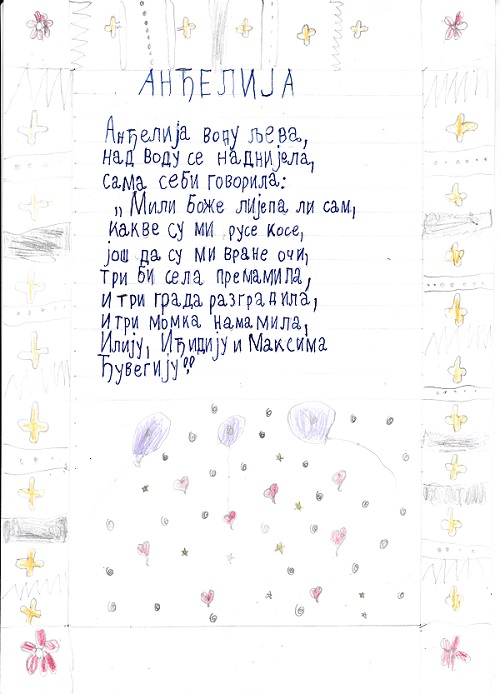 АНЂЕЛИЈА
Анђелија воду љева,
над воду се наднијела,
сама себи говорила:
„Мили Боже лијепа ли сам,
какве су ми русе косе,
још да су ми вране очи,
три би села премамила,
и три града разградила,
и три момка намамила,
Илију, Иђидију и Максима
Ђувегију!“